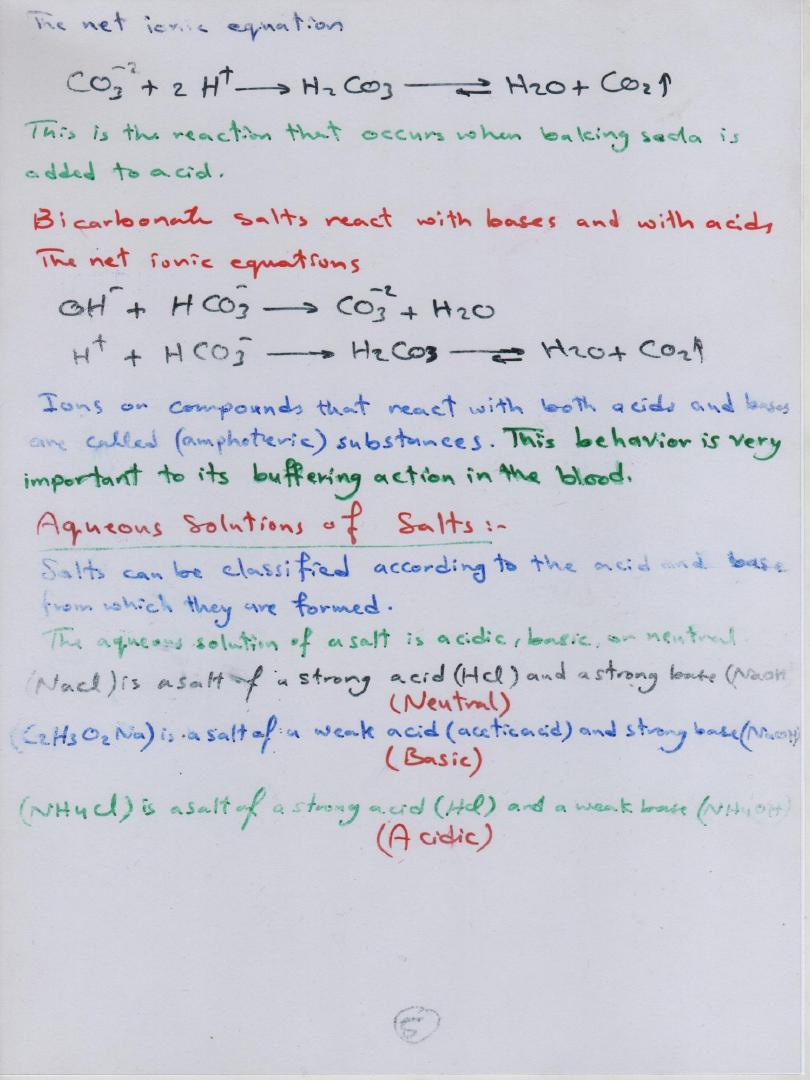 The net ionic equation
CO₃⁻² + 2 H⁺ ⟶ H₂CO₃ ⇌ H₂O + CO₂↑
This is the reaction that occurs when baking soda is
added to acid.
Bicarbonate salts react with bases and with acids
The net ionic equations
OH⁻ + HCO₃⁻ ⟶ CO₃⁻² + H₂O
H⁺ + HCO₃⁻ ⟶ H₂CO₃ ⇌ H₂O + CO₂↑
Ions or compounds that react with both acids and bases
are called (amphoteric) substances. This behavior is very
important to its buffering action in the blood.
Aqueous Solutions of Salts :-
Salts can be classified according to the acid and base
from which they are formed.
The aqueous solution of a salt is acidic, basic, or neutral
(Nacl) is a salt of a strong acid (Hcl) and a strong base (NaOH
(Neutral)
(C₂H₃O₂Na) is a salt of a weak acid (acetic acid) and strong base (NaOH)
(Basic)
(NH₄cl) is a salt of a strong acid (Hcl) and a weak base (NH₄OH)
(Acidic)
5